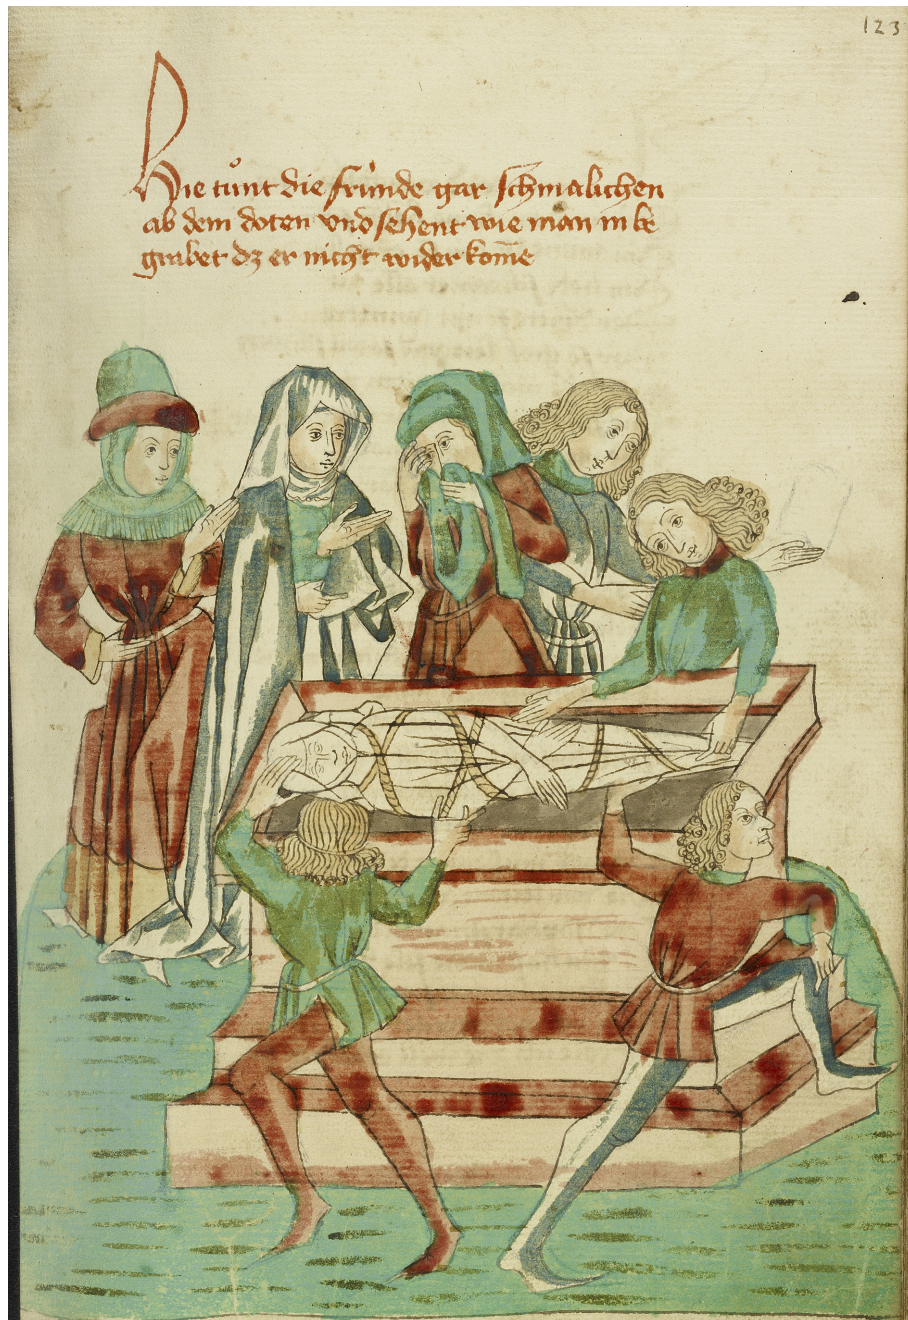 123
Hie tůnt die frùnde gar schmalichen
ab dem doten vnd sehent wie man in be
grabet dz er nicht wider kom̄e